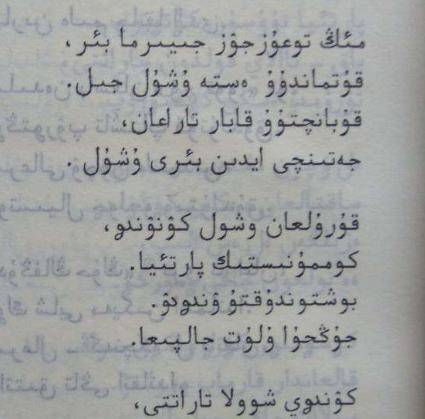 مىڭ توعۇزجۉز جىيىرما بئر،
قۇتماندۇۇ ەستە ۇشۇل جىل.
قۇبانچتۇۇ قابار تاراعان،
جەتىنچى ايدىن بئرى ۇشۇل .
قۇرۇلعان وشول كۉنۉندۅ،
كوممۇنىستىك پارتئيا.
بوشتوندۇقتۇ ۉندۅدۉ.
جۇڭحۇا ۇلۇت جالپىعا.
كۉندۅي شوولا تاراتتى،